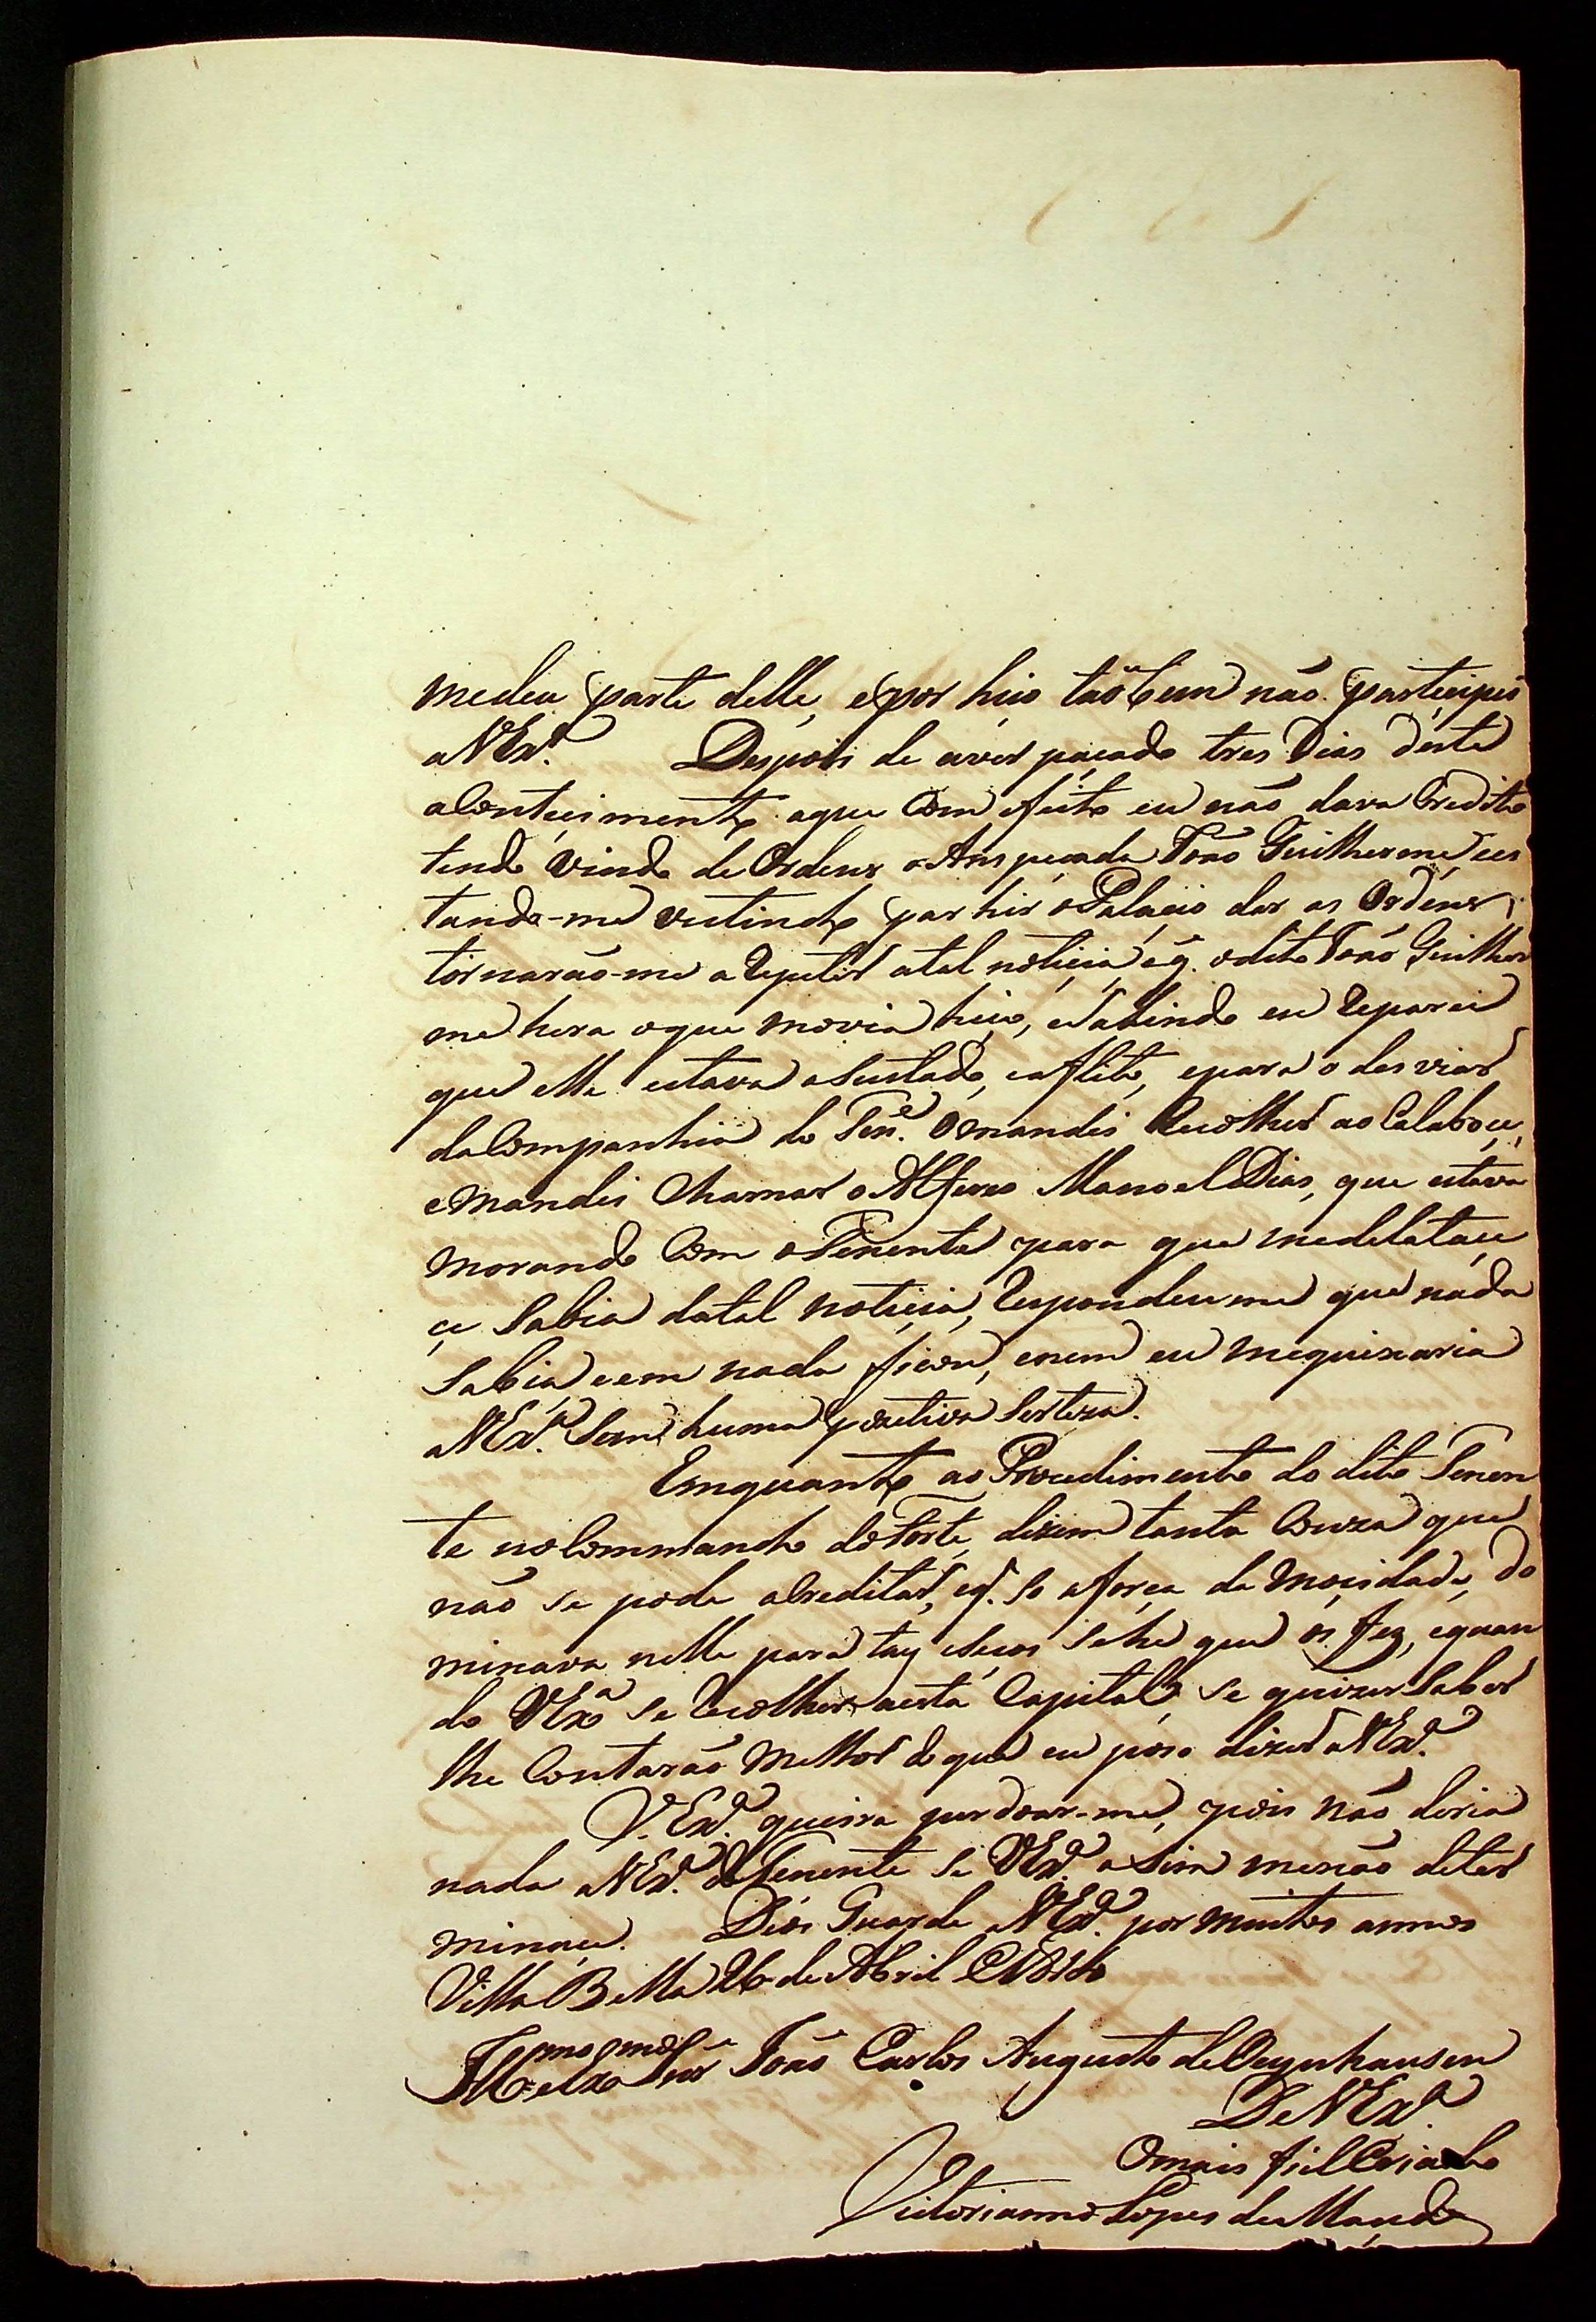 medeu parte delle, epor hiço taõbem não partecipei
a VExª. Despois de aver paçado tres Dias deste
acontecimento aque Com efeito eu não dava Credito
tendo Vindo de Ordens o Anspeçada João Guilherme, es
tando-me vestindo par hir o Palacio dar as Ordens,
tornarão-me a Repetir atal noticia eq. odito João Guilher
me hera oque movia hiço, eSabindo eu Reparei
que elle estava aSustado, eaflito, epara o desviar
daCompanhia do Tenᵉ. Omandei Recolher ao Calabouço,
emandei Chamar o Alferes Manoel Dias, que estava
morando Com oTenente para que medelataçe
çe Sabia datal noticia, Respondeume que nada
Sabia eem nada ficou, enem eu mequixaria
a VExª. Sem huma pozetiva Serteza.
Emquanto ao Procedimento do dito Tenen
te noCommando doForte, dizem tanta Couza que
não se pode acreditar, eq. So aforça da mocidade, do
minava nelle para tais eseços Sehe que os fez, equan
do VExª se Recolher aesta Capital, se quizer Saber
lhe Contarão melhor doque eu poso dizer aVExª.
V.Exª. queira perdoar-me, pois não diria
nada aVExª. doTenente se VExª. aSim menão deter
minaçe. Deos Guarde aVExª. por muitos annos
Villa Bella 26 de Abril de 1810
Illmo eExmo Snr João Carlos Augusto deOeynhausen
DeVExª.
Omais fiel Criado
Victorianno Lopes de Macedo